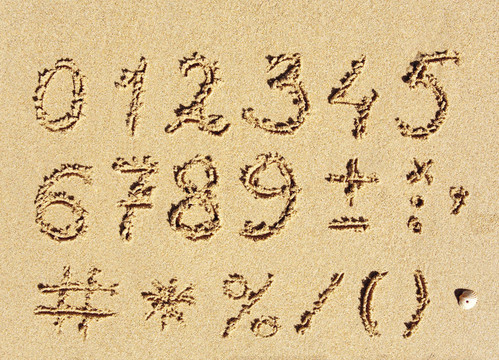 0 1 2 3 4 5
6 7 8 9 ± * : ,
# * % / ( )